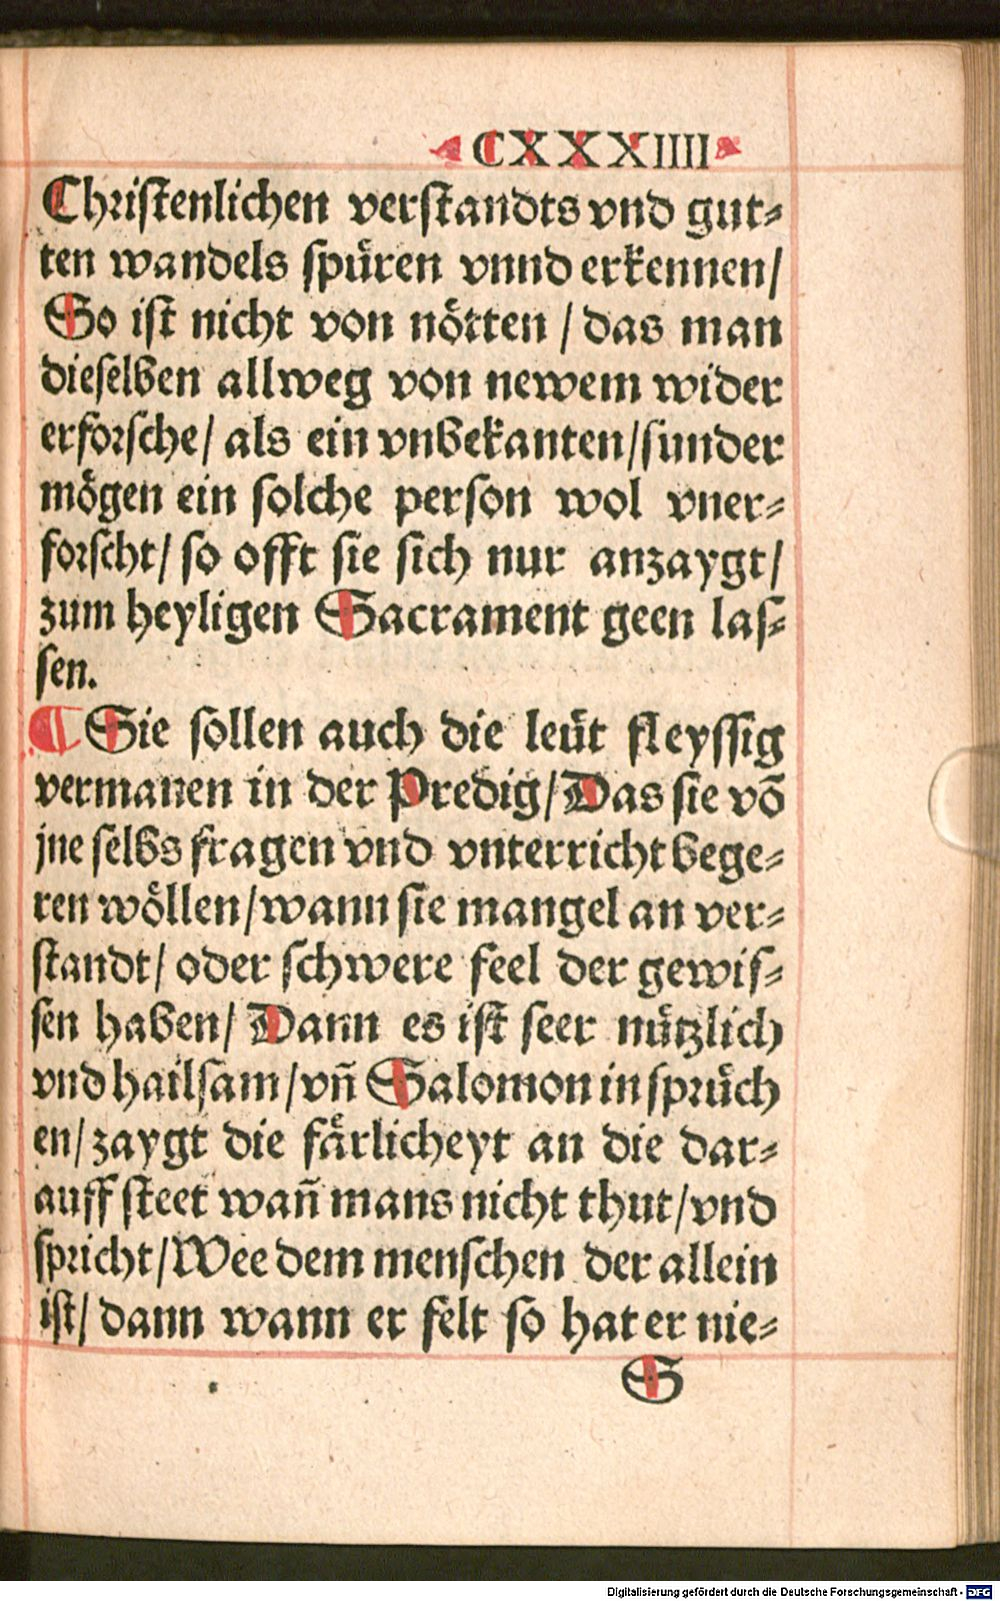 CXXXIIII
Chriſtenlichen verſtandts vnd gut⸗
ten wandels ſpuͤren vnnd erkennen/
So iſt nicht von noͤtten / das man
dieſelben allweg von newem wider
erforſche/ als ein vnbekanten/ſunder
moͤgen ein ſolche perſon wol vner⸗
forſcht/ ſo offt ſie ſich nur anzaygt/
zum heyligen Sacrament geen laſ⸗
ſen.
¶ Sie ſollen auch die leuͤt fleyſſig
vermanen in der Predig/Das ſie võ
jne ſelbs fragen vnd vnterricht bege⸗
ren woͤllen/wann ſie mangel an ver⸗
ſtandt/ oder ſchwere feel der gewiſ⸗
ſen haben/ Dann es iſt ſeer nuͤtzlich
vnd hailſam/vñ Salomon in ſpruͤch
en/zaygt die faͤrlicheyt an die dar⸗
auff ſteet wañ mans nicht thut/vnd
ſpricht/Wee dem menſchen der allein
iſt/ dann wann er felt ſo hat er nie⸗
S
Digitalisierung gefördert durch die Deutsche Forschungsgemeinschaft - DFG